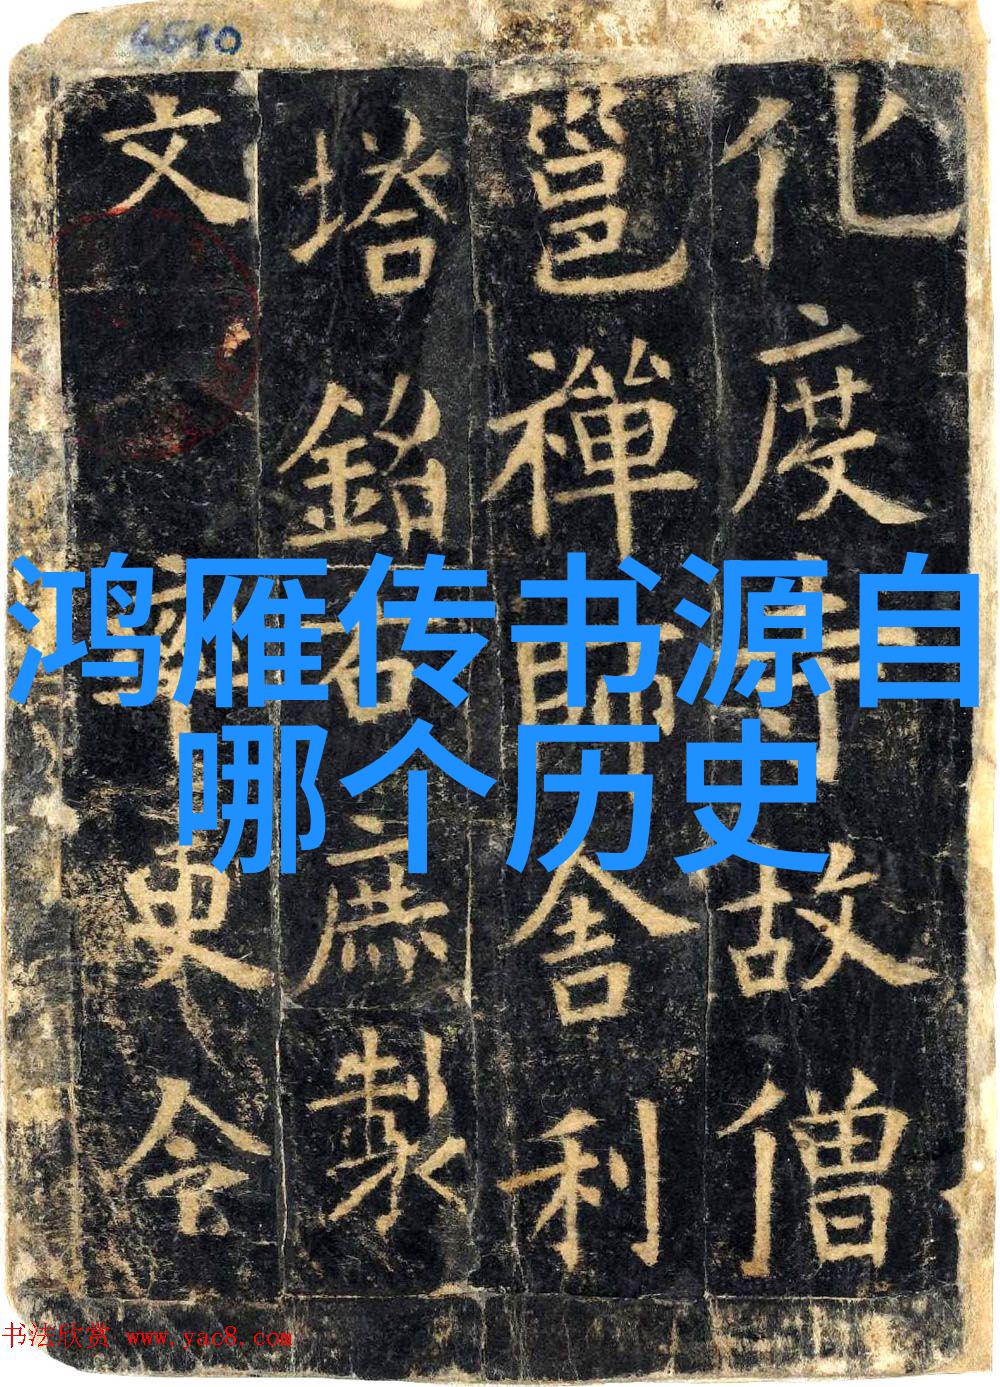 化度寺故僧
邕禪師舍利
塔銘右庶製
文率更令
鸿雁传书源自
哪个历史
书法欣赏 www.yac8.com